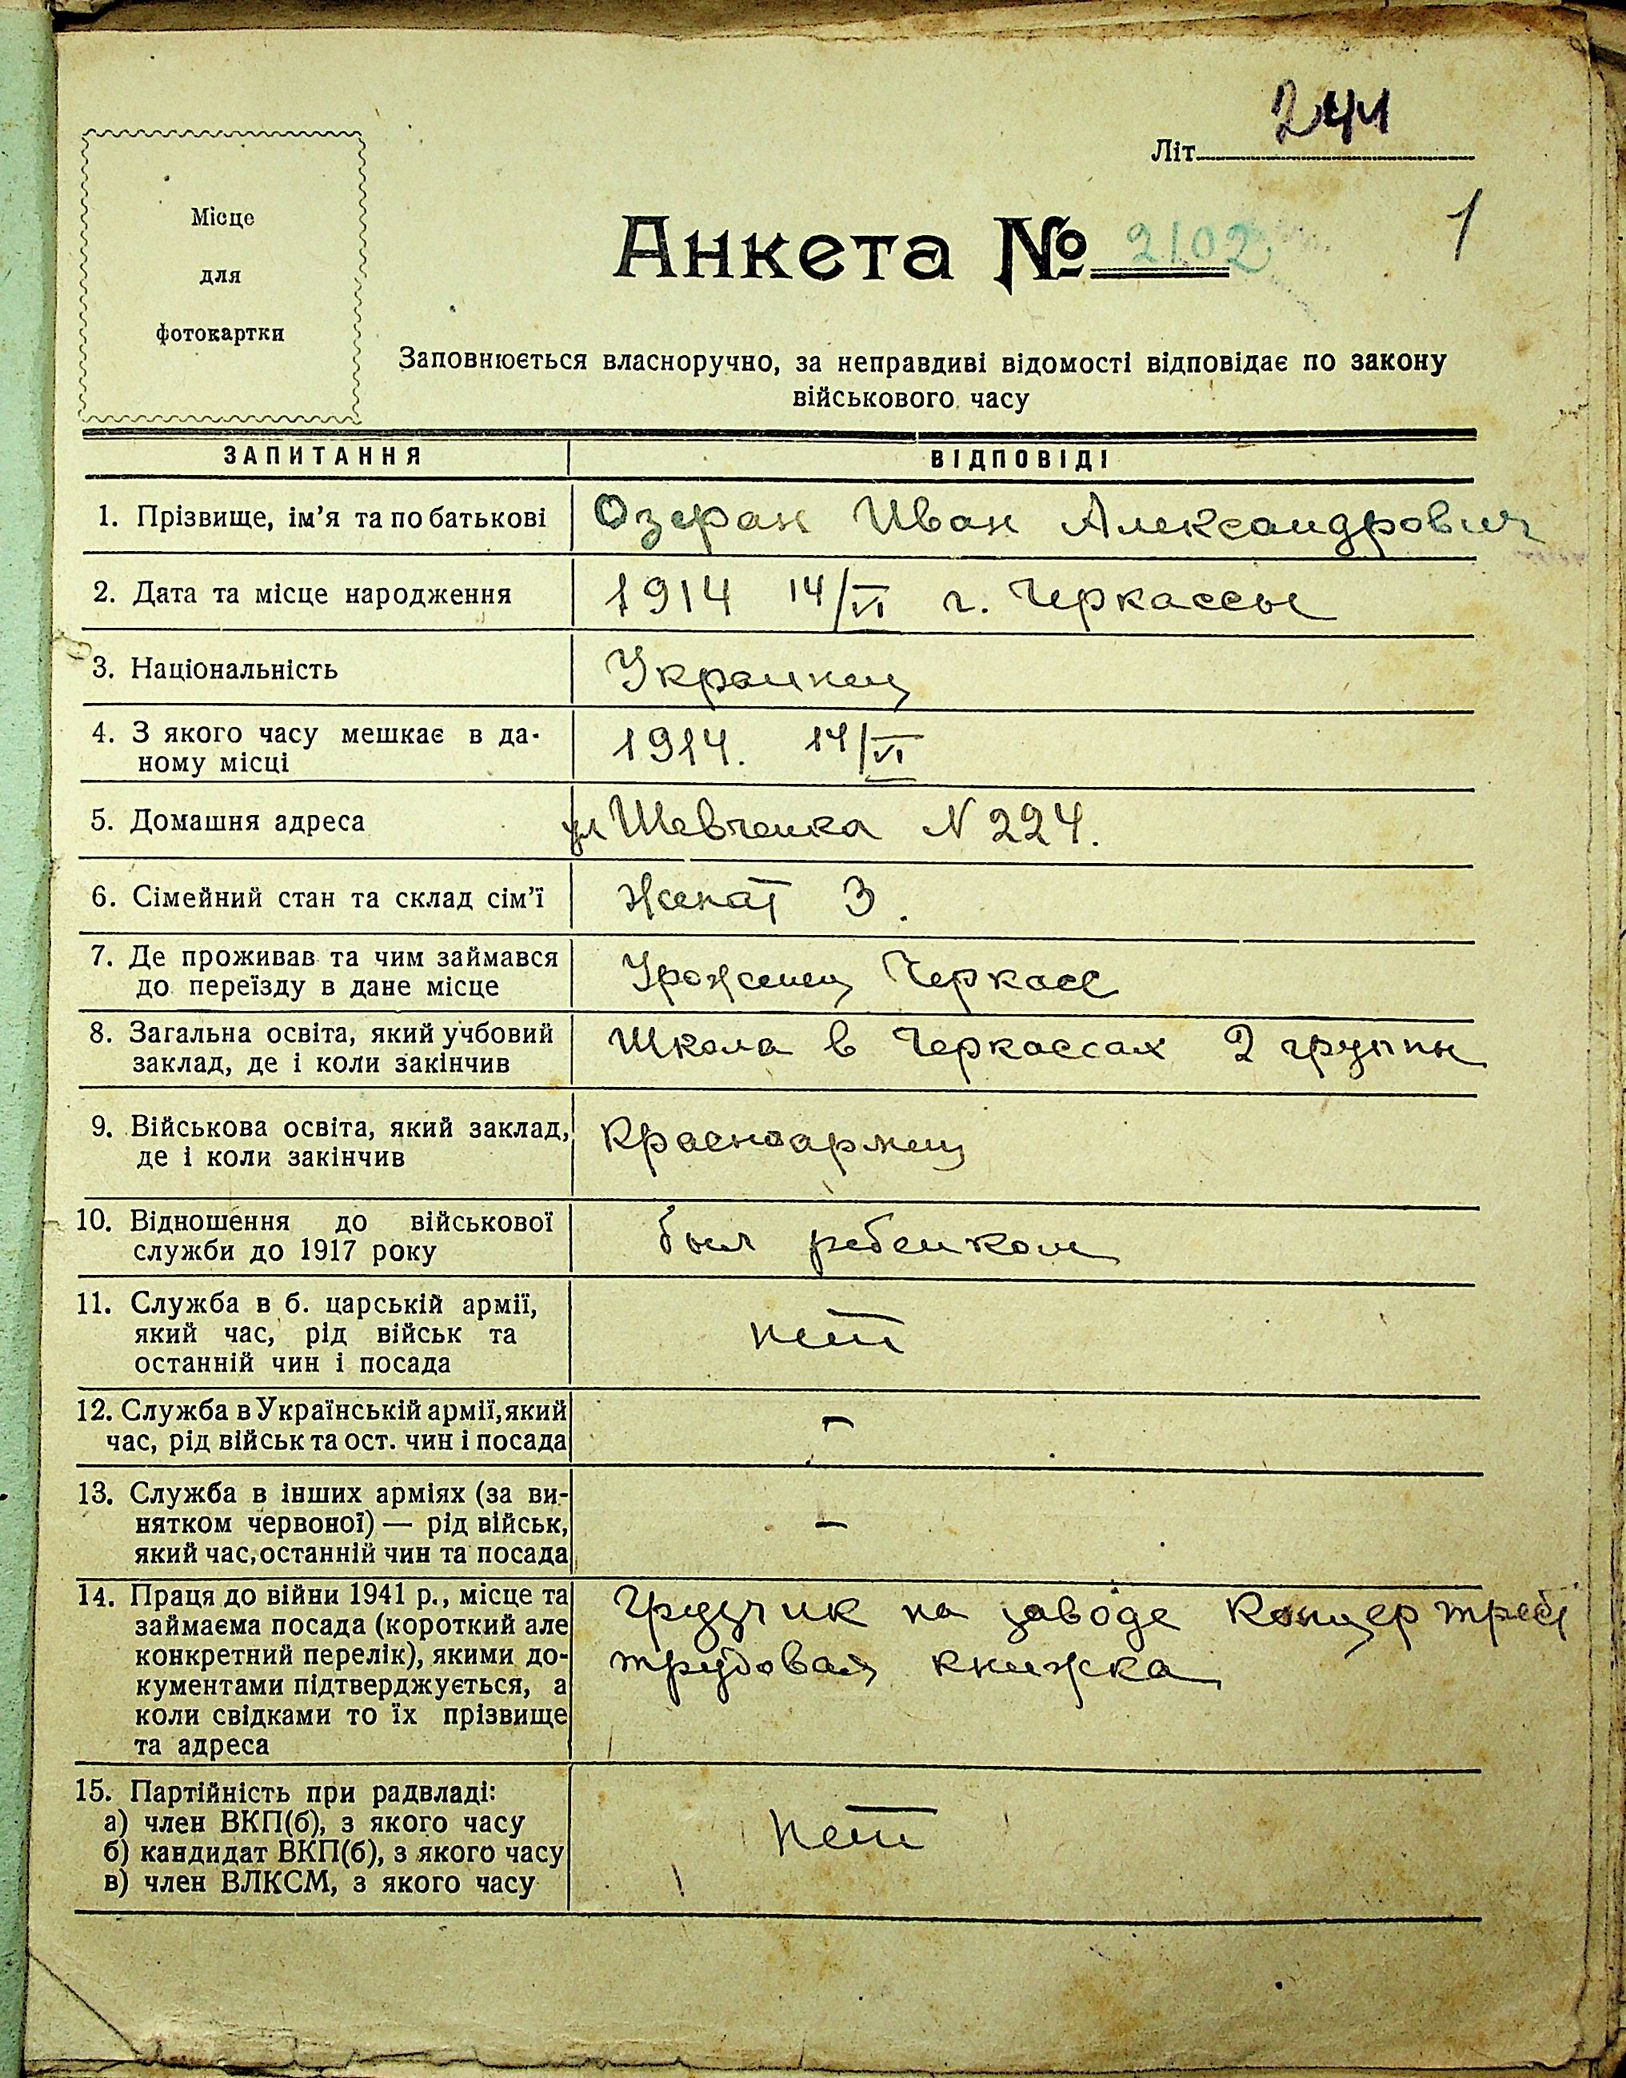 244
Літ
1
Місце
для
фотокартки
Анкета № 2102
Заповнюється власноручно, за неправдиві відомості відповідає по закону
військового часу
ЗАПИТАННЯ ВІДПОВІДІ
1. Прізвище, ім’я та по батькові Озеран Иван Александрович
2. Дата та місце народження 1914 14/VI г. Черкассы
3. Національність Украинец
4. З якого часу мешкає в да-
ному місці 1914. 14/VI
5. Домашня адреса ул Шевченка N 224.
6. Сімейний стан та склад сім’ї Женат 3.
7. Де проживав та чим займався
до переїзду в дане місце Уроженец Черкасс
8. Загальна освіта, який учбовий
заклад, де і коли закінчив Школа в Черкассах 2 группы
9. Військова освіта, який заклад,
де і коли закінчив Красноармец
10. Відношення до військової
служби до 1917 року был ребенком
11. Служба в б. царській армії,
який час, рід військ та
останній чин і посада нет
12. Служба в Українській армії, який
час, рід військ та ост. чин і посада –
13. Служба в інших арміях (за ви-
нятком червоної) — рід військ,
який час, останній чин та посада –
14. Праця до війни 1941 р., місце та
займаєма посада (короткий але
конкретний перелік), якими до-
кументами підтверджується, а
коли свідками то їх прізвище
та адреса
Грузчик на заводе
трудовая книжка
15. Партійність при радвладі:
а) член ВКП(б), з якого часу
б) кандидат ВКП(б), з якого часу
в) член ВЛКСМ, з якого часу
нет